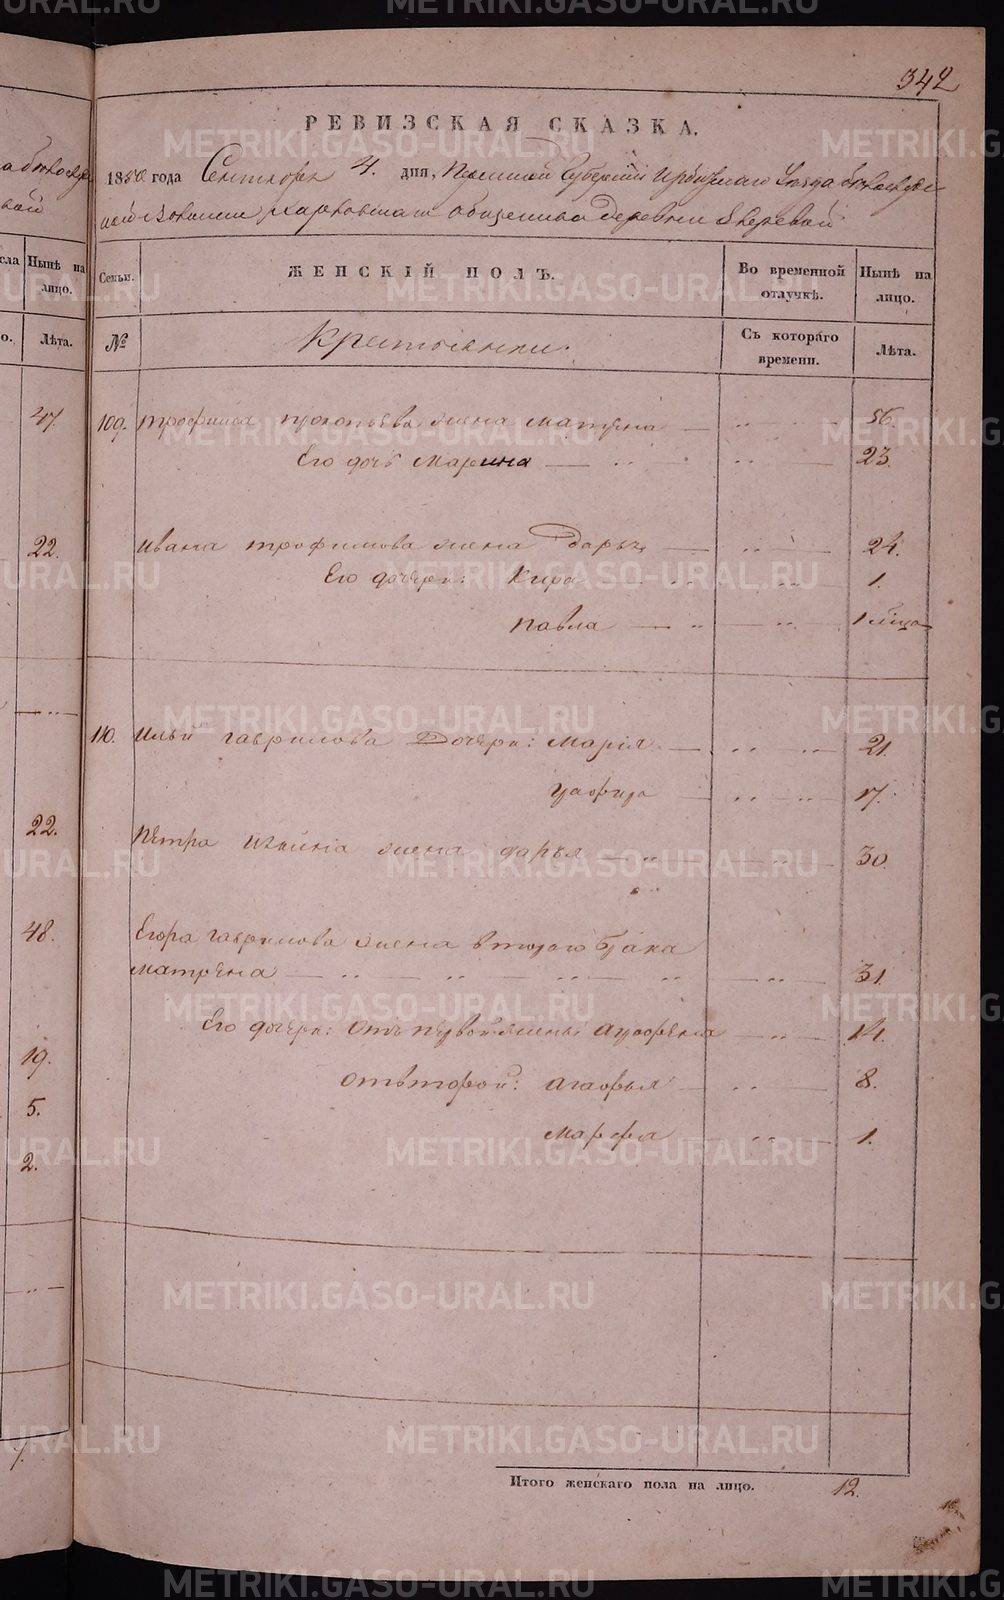 342
РЕВИЗСКАЯ СКАЗКА.
1850 года Сентября 4. дня, Пермской Губернии Ирбитскаго Уезда
волости Харловскаго общества Деревни
Семьи.
ЖЕНСКІЙ ПОЛЪ.
Во временной отлучкѣ.
Нынѣ на лицо.
№
Крестьянки.
Съ котораго времени.
Лѣта.
109. Трофима Прокопьева жена Матрена — 56.
Его дочь Марина — 23.
Ивана Трофимова жена Дарья — 24.
Его дочери: Кира — 1.
Павла — 1 мѣца
110. Ильи Гаврилова Дочери: Марія — 21.
17.
Петра жена Дарья — 30.
Егора Гаврилова жена втораго брака
Матрена — 31.
Его дочери: отъ первой жены — 14.
Отъ второй: Агафья — 8.
Марфа — 1.
Итого женскаго пола на лицо. 12.
Нынѣ на лицо.
Лѣта.
47.
22.
22.
48.
19.
5.
2.
METRIKI.GASO-URAL.RU